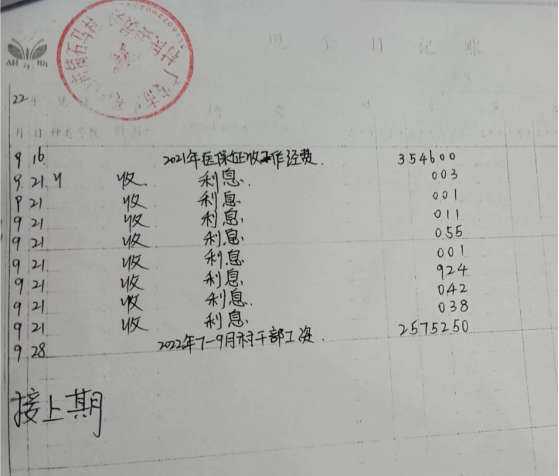 现金日记账
22年
月 日 种类 号数
9 16 2021年医保征收工作经费 354600
9 21 4 收 利息 003
9 21 收 利息 001
9 21 收 利息 011
9 21 收 利息 055
9 21 收 利息 001
9 21 收 利息 924
9 21 收 利息 042
9 21 收 利息 038
9 28 2022年7-9月村干部工资 2575250
接上期